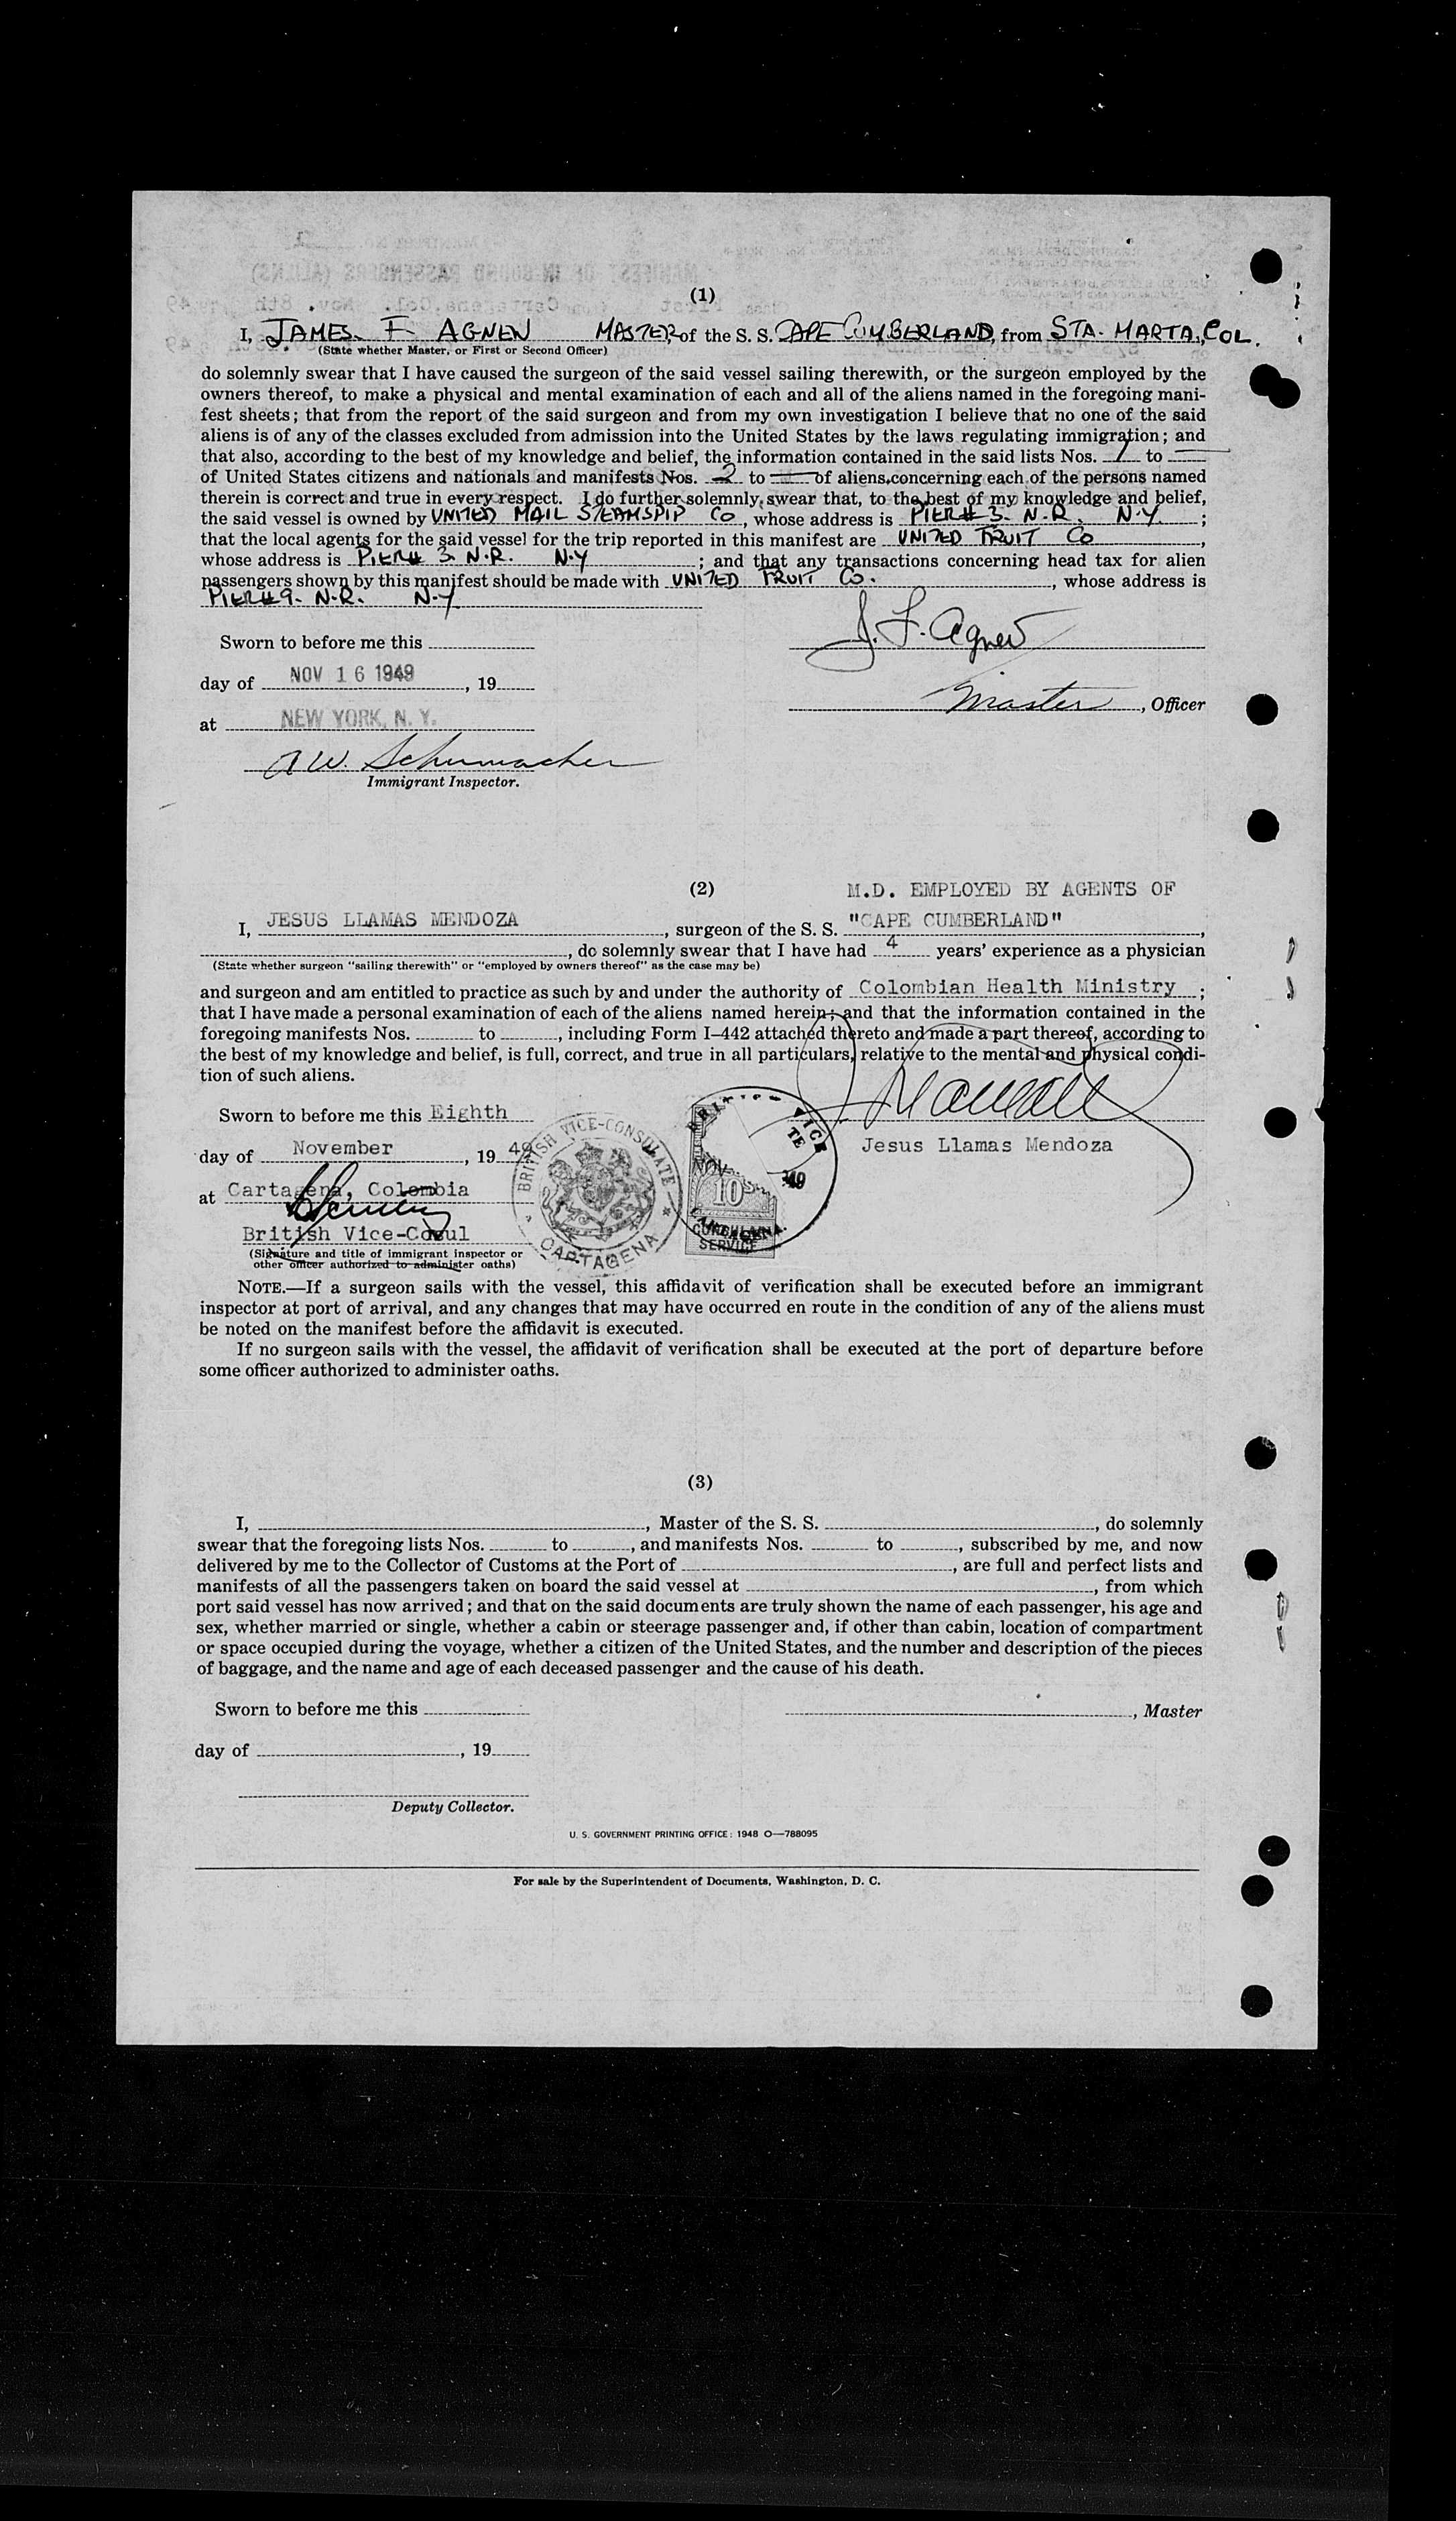 (1)
I, JAMES F. AGNEW MASTER, of the S. S. CAPE CUMBERLAND, from STA. MARTA, COL.
(State whether Master, or First or Second Officer)
do solemnly swear that I have caused the surgeon of the said vessel sailing therewith, or the surgeon employed by the
owners thereof, to make a physical and mental examination of each and all of the aliens named in the foregoing mani-
fest sheets; that from the report of the said surgeon and from my own investigation I believe that no one of the said
aliens is of any of the classes excluded from admission into the United States by the laws regulating immigration; and
that also, according to the best of my knowledge and belief, the information contained in the said lists Nos. 1 to —
of United States citizens and nationals and manifests Nos. 2 to — of aliens, concerning each of the persons named
therein is correct and true in every respect. I do further solemnly swear that, to the best of my knowledge and belief,
the said vessel is owned by UNITED MAIL STEAMSPIP CO, whose address is PIER# 3. N.R. N.Y. ;
that the local agents for the said vessel for the trip reported in this manifest are UNITED FRUIT CO ,
whose address is PIER# 3 N.R. N.Y ; and that any transactions concerning head tax for alien
passengers shown by this manifest should be made with UNITED FRUIT CO. , whose address is
PIER#9. N.R. N.Y
J. F. Agnew
Sworn to before me this
day of NOV 16 1949, 19
Master, Officer
at NEW YORK, N. Y.
A W. Schumacher
Immigrant Inspector.
(2)
M.D. EMPLOYED BY AGENTS OF
I, JESUS LLAMAS MENDOZA, surgeon of the S. S. "CAPE CUMBERLAND",
, do solemnly swear that I have had 4 years' experience as a physician
(State whether surgeon "sailing therewith" or "employed by owners thereof" as the case may be)
and surgeon and am entitled to practice as such by and under the authority of Colombian Health Ministry ;
that I have made a personal examination of each of the aliens named herein; and that the information contained in the
foregoing manifests Nos. to , including Form I–442 attached thereto and made a part thereof, according to
the best of my knowledge and belief, is full, correct, and true in all particulars, relative to the mental and physical condi-
tion of such aliens.
Sworn to before me this Eighth
day of November, 19 49
Jesus Llamas Mendoza
at Cartagena, Colombia
British Vice-Cosul
(Signature and title of immigrant inspector or
other officer authorized to administer oaths)
BRITISH VICE-CONSULATE
CARTAGENA
NOV 49
10s
CONSULAR
SERVICE
NOTE.—If a surgeon sails with the vessel, this affidavit of verification shall be executed before an immigrant
inspector at port of arrival, and any changes that may have occurred en route in the condition of any of the aliens must
be noted on the manifest before the affidavit is executed.
If no surgeon sails with the vessel, the affidavit of verification shall be executed at the port of departure before
some officer authorized to administer oaths.
(3)
I, , Master of the S. S. , do solemnly
swear that the foregoing lists Nos. to , and manifests Nos. to , subscribed by me, and now
delivered by me to the Collector of Customs at the Port of , are full and perfect lists and
manifests of all the passengers taken on board the said vessel at , from which
port said vessel has now arrived; and that on the said documents are truly shown the name of each passenger, his age and
sex, whether married or single, whether a cabin or steerage passenger and, if other than cabin, location of compartment
or space occupied during the voyage, whether a citizen of the United States, and the number and description of the pieces
of baggage, and the name and age of each deceased passenger and the cause of his death.
Sworn to before me this
, Master
day of , 19
Deputy Collector.
U. S. GOVERNMENT PRINTING OFFICE: 1948 O—788095
For sale by the Superintendent of Documents, Washington, D. C.